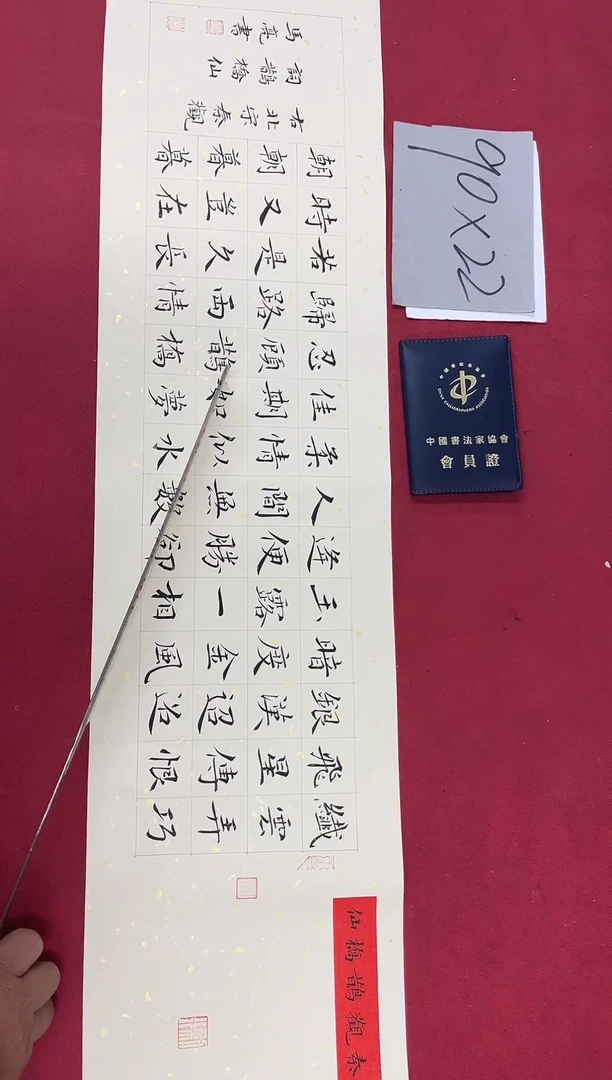 秦觀鵲橋仙
纖雲弄巧
飛星傳恨
銀漢迢迢
暗度金風
玉露一相
逢便勝卻
人間無數
柔情似水
佳期如夢
忍顧鵲橋
歸路兩情
若是久長
時又豈在
朝朝暮暮
右北宋秦觀
詞鵲橋仙
馬亮書
90×22
中國書法家協會
CHINA CALLIGRAPHERS ASSOCIATION
中國書法家協會
會員證